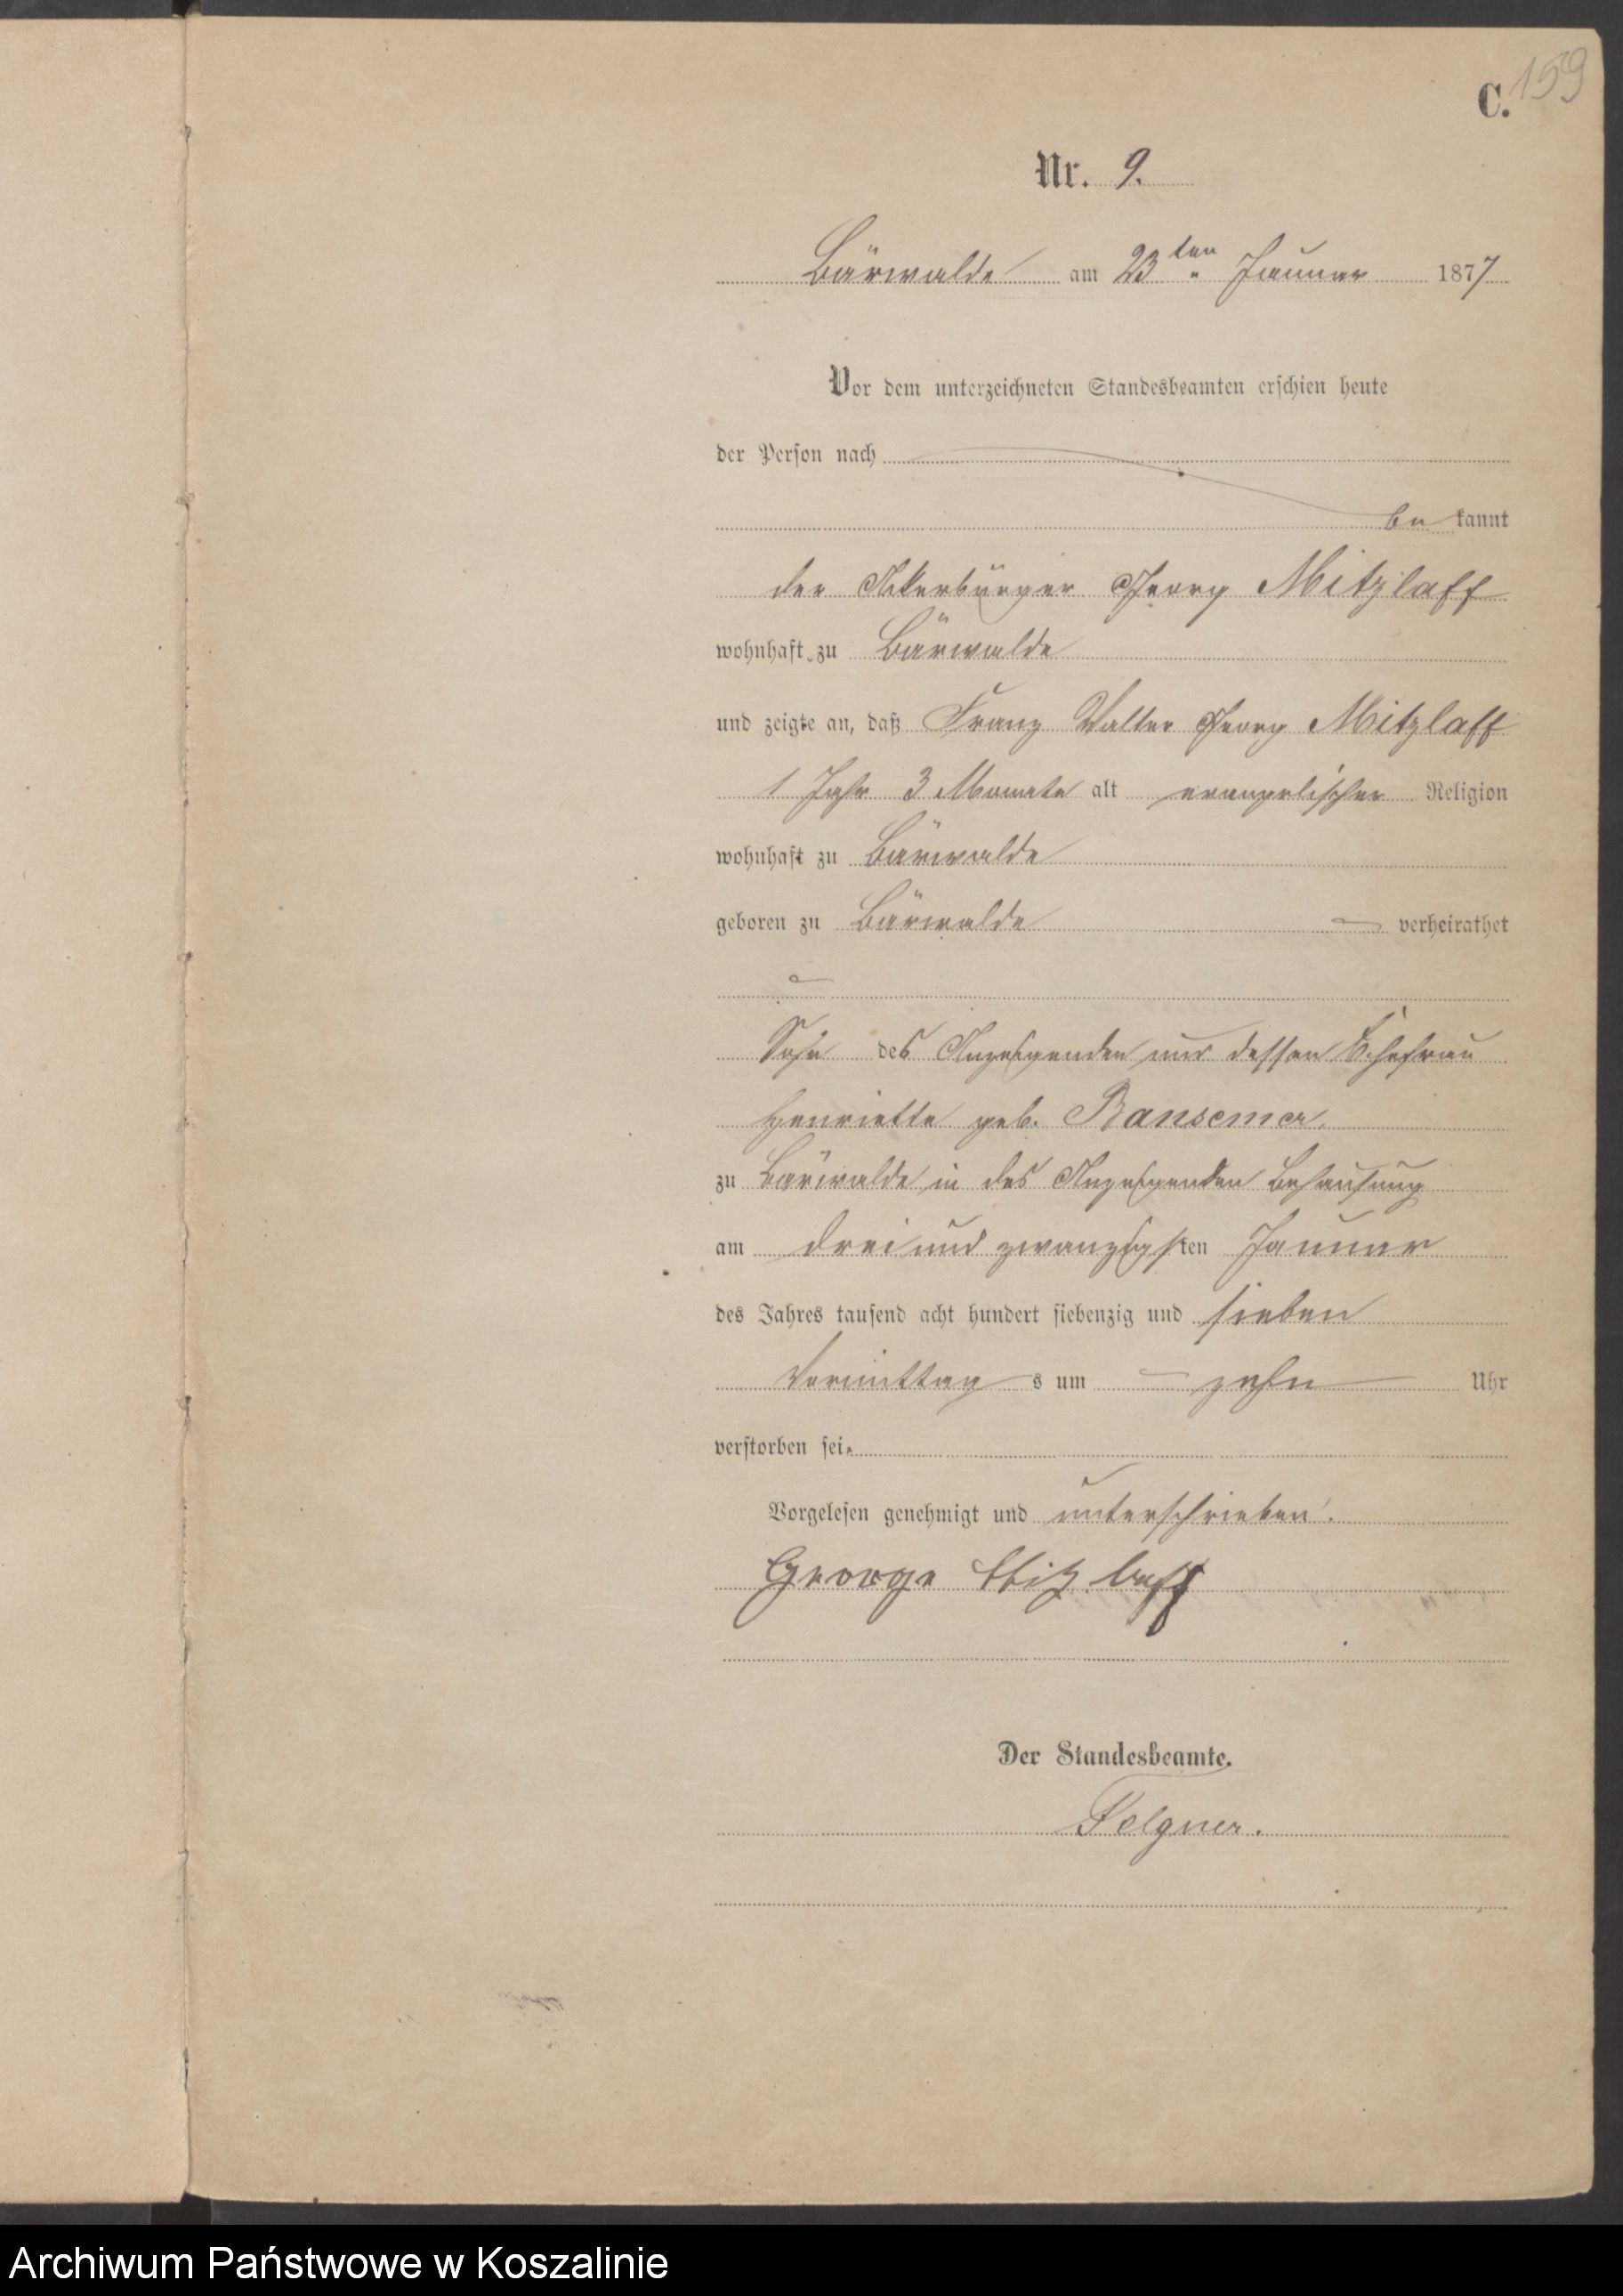 C. 159
Nr. 9.
Bärwalde am 23ten Januar 1877
Vor dem unterzeichneten Standesbeamten erschien heute
der Person nach
be kannt
der Ackerbürger Georg Mitzlaff
wohnhaft zu Bärwalde
und zeigte an, daß Franz Walter Georg Mitzlaff
1 Jahr 3 Monate alt evangelischer Religion
wohnhaft zu Bärwalde
geboren zu Bärwalde — verheirathet
Sohn des Anzeigenden und dessen Ehefrau
Henriette geb. Bansemer.
zu Bärwalde in des Anzeigenden Behausung
am drei und zwanzigsten Januar
des Jahres tausend acht hundert siebenzig und sieben
Vormittag s um — zehn — Uhr
verstorben sei.
Vorgelesen genehmigt und unterschrieben.
George Mitzlaff
Der Standesbeamte.
Felgner.
Archiwum Państwowe w Koszalinie